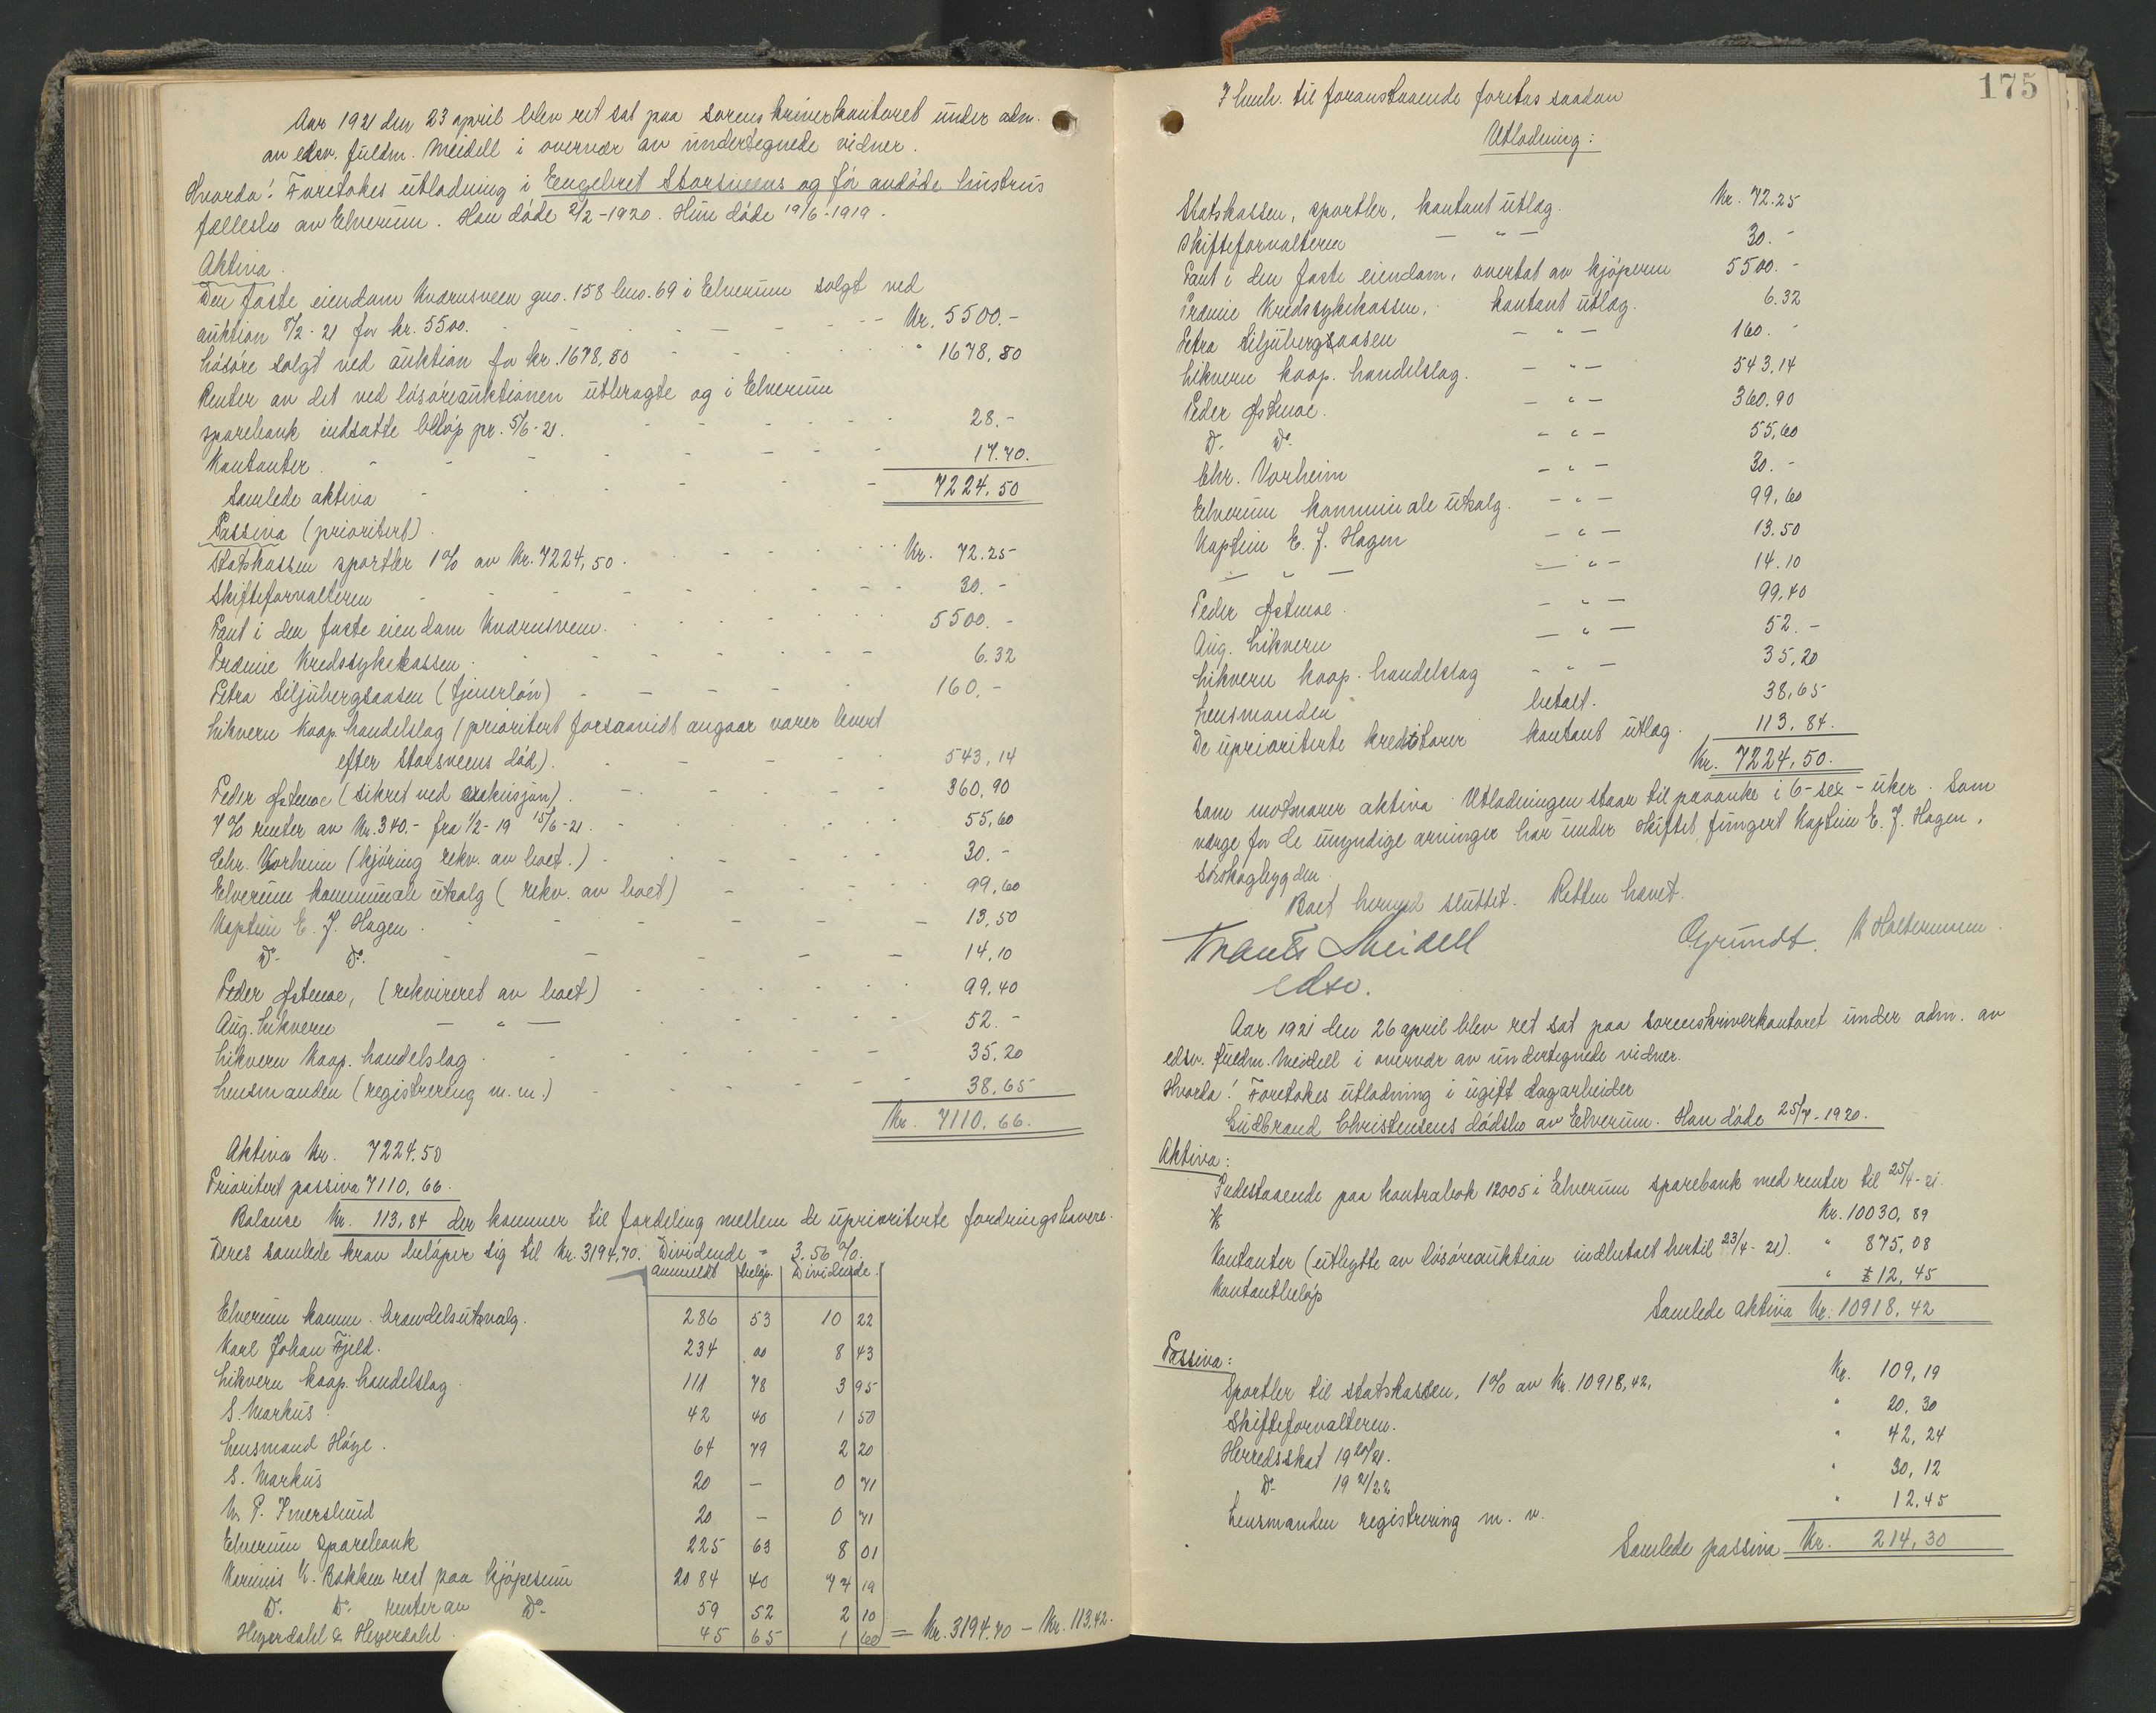 Aar 1921 den 23 april blev ret sat paa sorenskriverkontoret under adm.
av edsv. fuldm. Meidell i overvær av undertegnede vidner.
Hvorda! Foretokes utlodning i Engebret Storsveens og før avdöde hustrus
fællesbo av Elverum. Han döde 2/2-1920. Hun döde 19/6-1919.
Aktiva.
Den faste eiendom Kvernsveen gno. 158 bno. 69 i Elverum solgt ved
auktion 8/2-21 for kr. 5500. Kr. 5500.-
Lösöre solgt ved auktion for kr. 1678,80 " 1678,80
Renter av det ved lösöreauktionen utbragte og i Elverum
sparebank indsatte belöp pr. 5/6-21. 28.-
Kontanter. 17.70.
Samlede aktiva 7224,50
Passiva (prioritert)
Statskassen sportler 1% av Kr. 7224,50. Kr. 72.25
Skifteforvalteren 30.-
Pant i den faste eiendom Kvernsveen. 5500.-
Præmie Kredssykekassen. 6.32
Petra Siljubergsaasen (tjenerlön) 160.-
Likvern koop. handelslag (prioritert forsaavidt angaar varer levert
efter Storsveens död). 543,14
Peder Østmoe (sikret ved exekusjon). 360,90
7% renter av Kr. 340.- fra 1/2-19 15/6-21. 55,60
Chr. Vorheim (kjöring rekv. av boet.) 30.-
Elverum kommunale utsalg (rekv. av boet) 99,60
Kaptein E. J. Hagen. 13,50
Do. Do. 14,10
Peder Østmoe, (rekvireret av boet) 99.40
Aug. Likvern — " — 52.-
Likvern Koop. handelslag. 35,20
Lensmanden (registrering m. m.) 38,65
Kr. 7110,66.
Aktiva Kr. 7224.50
Prioritert passiva 7110,66.
Balance Kr. 113,84 der kommer til fordeling mellem de uprioriterte fordringshavere.
Deres samlede krav belöper sig til Kr. 3194,70. Dividende = 3.56%.
anmeldt belöp. Dividende.
Elverum komm. brændelsutvalg. 286 53 10 22
Karl Johan Fjeld. 234 00 8 43
Likvern koop. handelslag 111 78 3 95
S. Markus 42 40 1 50
Lensmand Höye. 64 79 2 20
S. Markus 20 — 0 71
N. P. Iverslund 20 — 0 71
Elverum sparebank 225 63 8 01
Karinius K. Bakken rest paa kjöpesum 2084 40 74 19
Do. Do. renter av Do. 59 52 2 10
Heyerdahl & Heyerdahl. 45 65 1 60 = Kr. 3194.70 – Kr. 113.42.
175
I henh. til foranstaaende foretas saadan
Utlodning:
Statskassen, sportler, kontant utlæg. Kr. 72.25
Skifteforvalteren — " — 30.-
Pant i den faste eiendom, overtat av kjöperen 5500.-
Præmie Kredssykekassen, kontant utlæg. 6.32
Petra Siljubergsaasen — " — 160.-
Likvern koop. handelslag. — " — 543,14
Peder Østmoe. — " — 360.90
Do. Do. — " — 55,60
Chr. Vorheim — " — 30.-
Elverum kommunale utsalg. — " — 99,60
Kaptein E. J. Hagen — " — 13.50
— " — — " — 14.10
Peder Østmoe. — " — 99,40
Aug. Likvern — " — 52.-
Likvern koop. handelslag — " — 35,20
Lensmanden betalt. 38,65
De uprioriterte kreditorer kontant utlæg. 113,84.
Kr. 7224,50.
som motsvarer aktiva. Utlodningen staar til paaanke i 6-sex-uker. Som
værge for de umyndige arvinger har under skiftet fungert Kaptein E. J. Hagen,
Sörskogbygden.
Boet herved sluttet. Retten hævet.
Frants Meidell Grundt. K Haltermann.
edsv.
Aar 1921 den 26 april blev ret sat paa sorenskriverkontoret under adm. av
edsv. fuldm. Meidell i overvær av undertegnede vidner.
Hvorda! Foretokes utlodning i ugift dagarbeider
Gudbrand Christensens dödsbo av Elverum. Han döde 25/7-1920.
Aktiva:
Indestaaende paa kontrabok 12005 i Elverum sparebank med renter til 25/4-21.
Kr. 10030,89
Kontanter (utbytte av lösöreauktion indbetalt hertil 23/4-21). " 875,08
Kontantbelöp " 12,45
Samlede aktiva Kr. 10918,42
Passiva:
Sportler til statskassen, 1% av Kr. 10918,42. Kr. 109,19
Skifteforvalteren. " 20,30
Herredsskat 1920/21. " 42,24
Do. 1921/22 " 30,12
Lensmanden registrering m. v. " 12.45
Samlede passiva Kr. 214,30